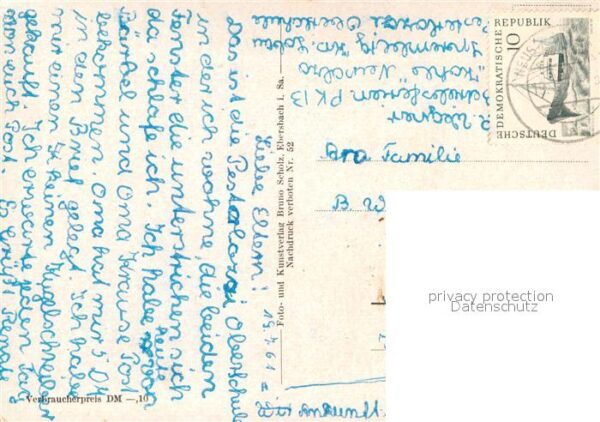 15.7.61
Liebe Eltern!
Das ist die Pestalozzi Oberschule
in der ich wohne, die beiden
Fenster die unterstrichen sich
da schlafe ich. Ich habe heute von
Bärbel und Oma Krause Post
bekommen. Oma hat mir 5 DM
in den Brief gelegt. Ich habe
mir einen Kugelschreiber
gekauft. Ich erwarte jeden Tag
von euch Post. Es grüßt
R. Wagner
PK 13
Pestalozzi Oberschule
An Familie
B. W
Foto- und Kunstverlag Bruno Scholz, Ebersbach i. Sa.
Nachdruck verboten Nr. 52
Verbraucherpreis DM —,10
DEUTSCHE DEMOKRATISCHE REPUBLIK
10
privacy protection
Datenschutz